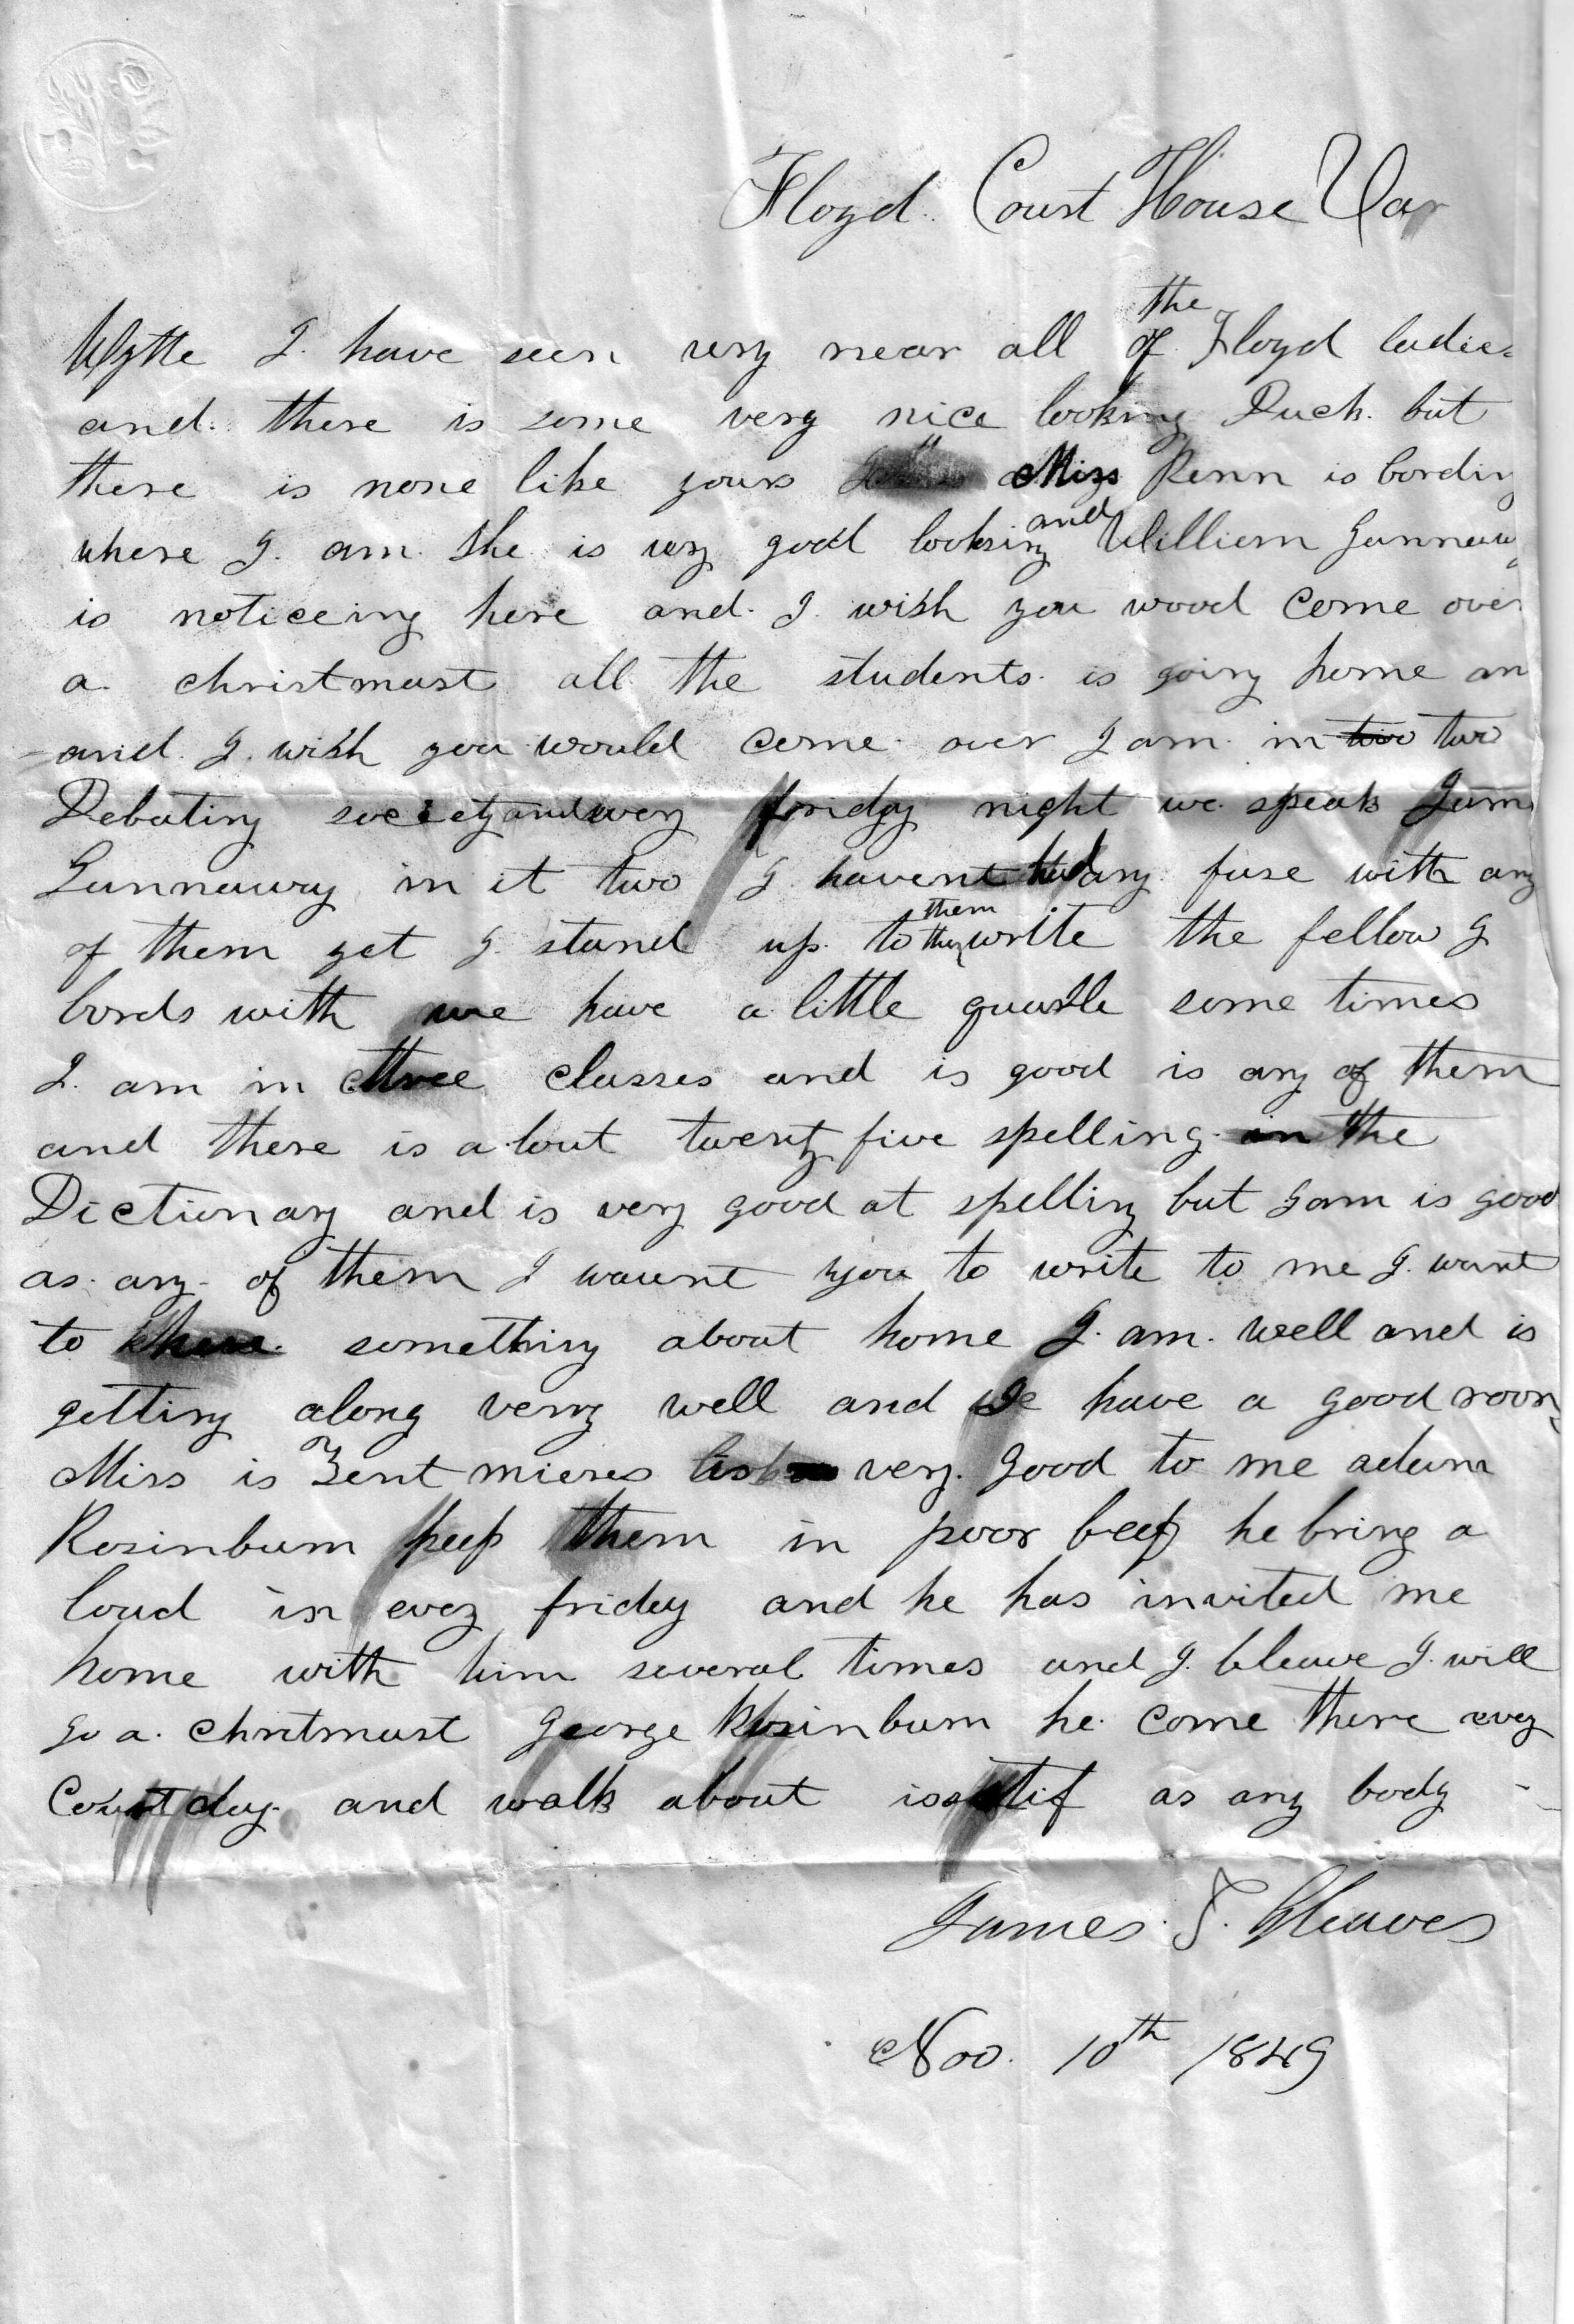 Floyd Court House Va
Wythe I have seen very near all of the Floyd ladies
and there is some very nice looking Duck but
there is none like yours Miss Penn is bording
where I am she is very good looking and William Gunnaway
is noticeing here and I wish you wood come over
a christmust all the students is going home an
and I wish you would come over I am in two two
Debating society and every friday night we speak Jam
Gunnaway in it two I havent had any fuse with any
of them yet I stand up to them they write the fellow I
bords with we have a little quarle some times
I am in three classes and is good is any of them
and there is a bout twenty five spelling in the
Dictionary and is very good at spelling but Sam is good
as any of them I waunt you to write to me I want
to something about home I am well and is
getting along very well and We have a good room
Miss is very good to me adam
Rosinbum keep them in poor beef he bring a
loud in every friday and he has invited me
home with him several times and I bleave I will
go a chritmust George Rosinbum he come there evey
Court day and walk about is stif as any body
James T. Cleaves
Nov. 10th 1849